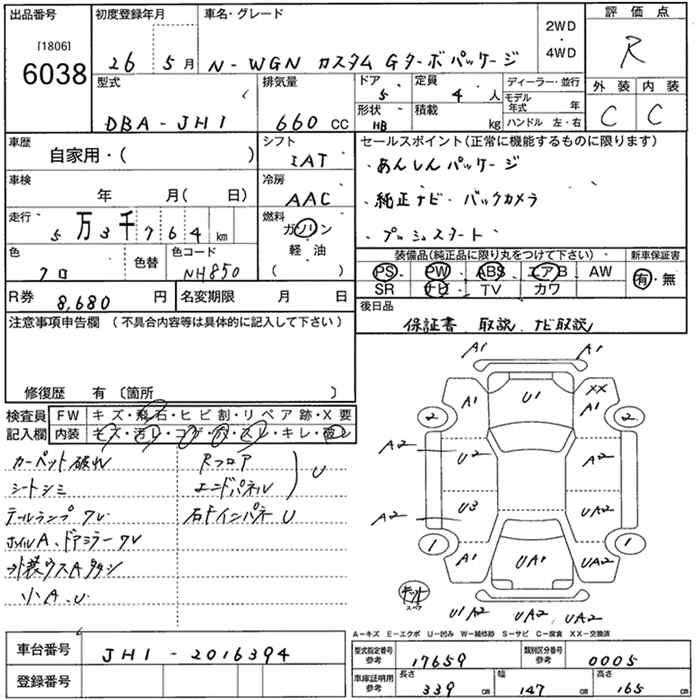 出品番号 初度登録年月 車名・グレード 評価点
[1806]
6038
26 5月 N-WGN カスタム Gターボパッケージ
2WD
4WD
R
型式 排気量 ドア 定員 ディーラー・並行 外装 内装
DBA-JH1 660 CC 5 4 人 モデル年式 年 C C
形状 HB 積載 kg ハンドル 左・右
車歴 自家用・( ) シフト IAT
セールスポイント(正常に機能するものに限ります)
・あんしんパッケージ
・純正ナビ・バックカメラ
・プッシュスタート
車検 年 月( 日) 冷房 AAC
走行 5万3千764 km 燃料 ガソリン 軽油 ( )
色 クロ 色替 色コード NH850
装備品(純正品に限り丸をつけて下さい) 新車保証書
PS PW ABS エアB AW 有・無
SR ナビ TV カワ
R券 8,680 円 名変期限 月 日
後日品
保証書、取説、ナビ取説
注意事項申告欄(不具合内容等は具体的に記入して下さい)
修復歴 有 〔箇所 〕
検査員 FW キズ・飛石・ヒビ割・リペア跡・X要
記入欄 内装 キズ・汚レ・コゲ・穴・スレ・キレ・破レ
カーペット破れ Rフロア
シートシミ エンドパネル U
テールランプ ワレ 右ドインパネ U
ホイルA、ドアミラーワレ
小A、U
A1 A1
A1 U1 XX A1
2 2
A2 U2 A2
A2 U3 UA2
1 1
A1 UA1 UA2
スペア
U1A2 UA2 UA2
A-キズ E-エクボ U-凹み W-補修跡 S-サビ C-腐食 XX-交換済
車台番号 JH1-2016394
登録番号
型式指定番号 参考 17659 類別区分番号 参考 0005
車庫証明用 参考 長さ 339 cm 幅 147 cm 高さ 165 cm